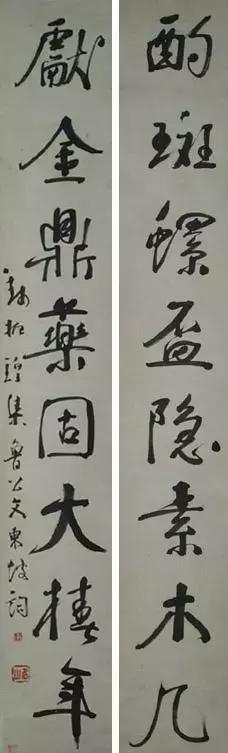 酌斑螺盃隐素木几
献金鼎藥固大椿年
集魯公文東坡詞